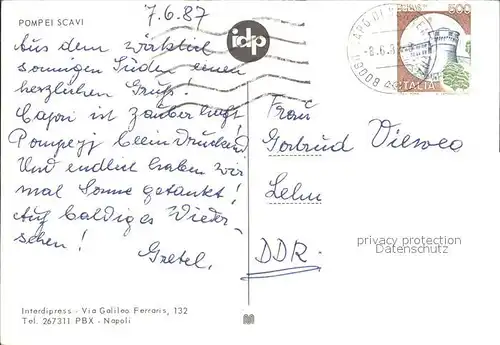 POMPEI SCAVI
7.6.87
idp
Aus dem wirklich
sonnigen Süden einen
herzlichen Gruß!
Capri ist zauberhaft
Pompeji beeindruckend.
Und endlich haben wir
mal Sonne getankt!
Auf baldiges Wieder-
sehen!
Gretel.
500
ITALIA
-8.6.8
Frau
Gertrud Vieweg
Lehn
DDR.
privacy protection
Interdipress - Via Galileo Ferraris, 132
Tel. 267311 PBX - Napoli